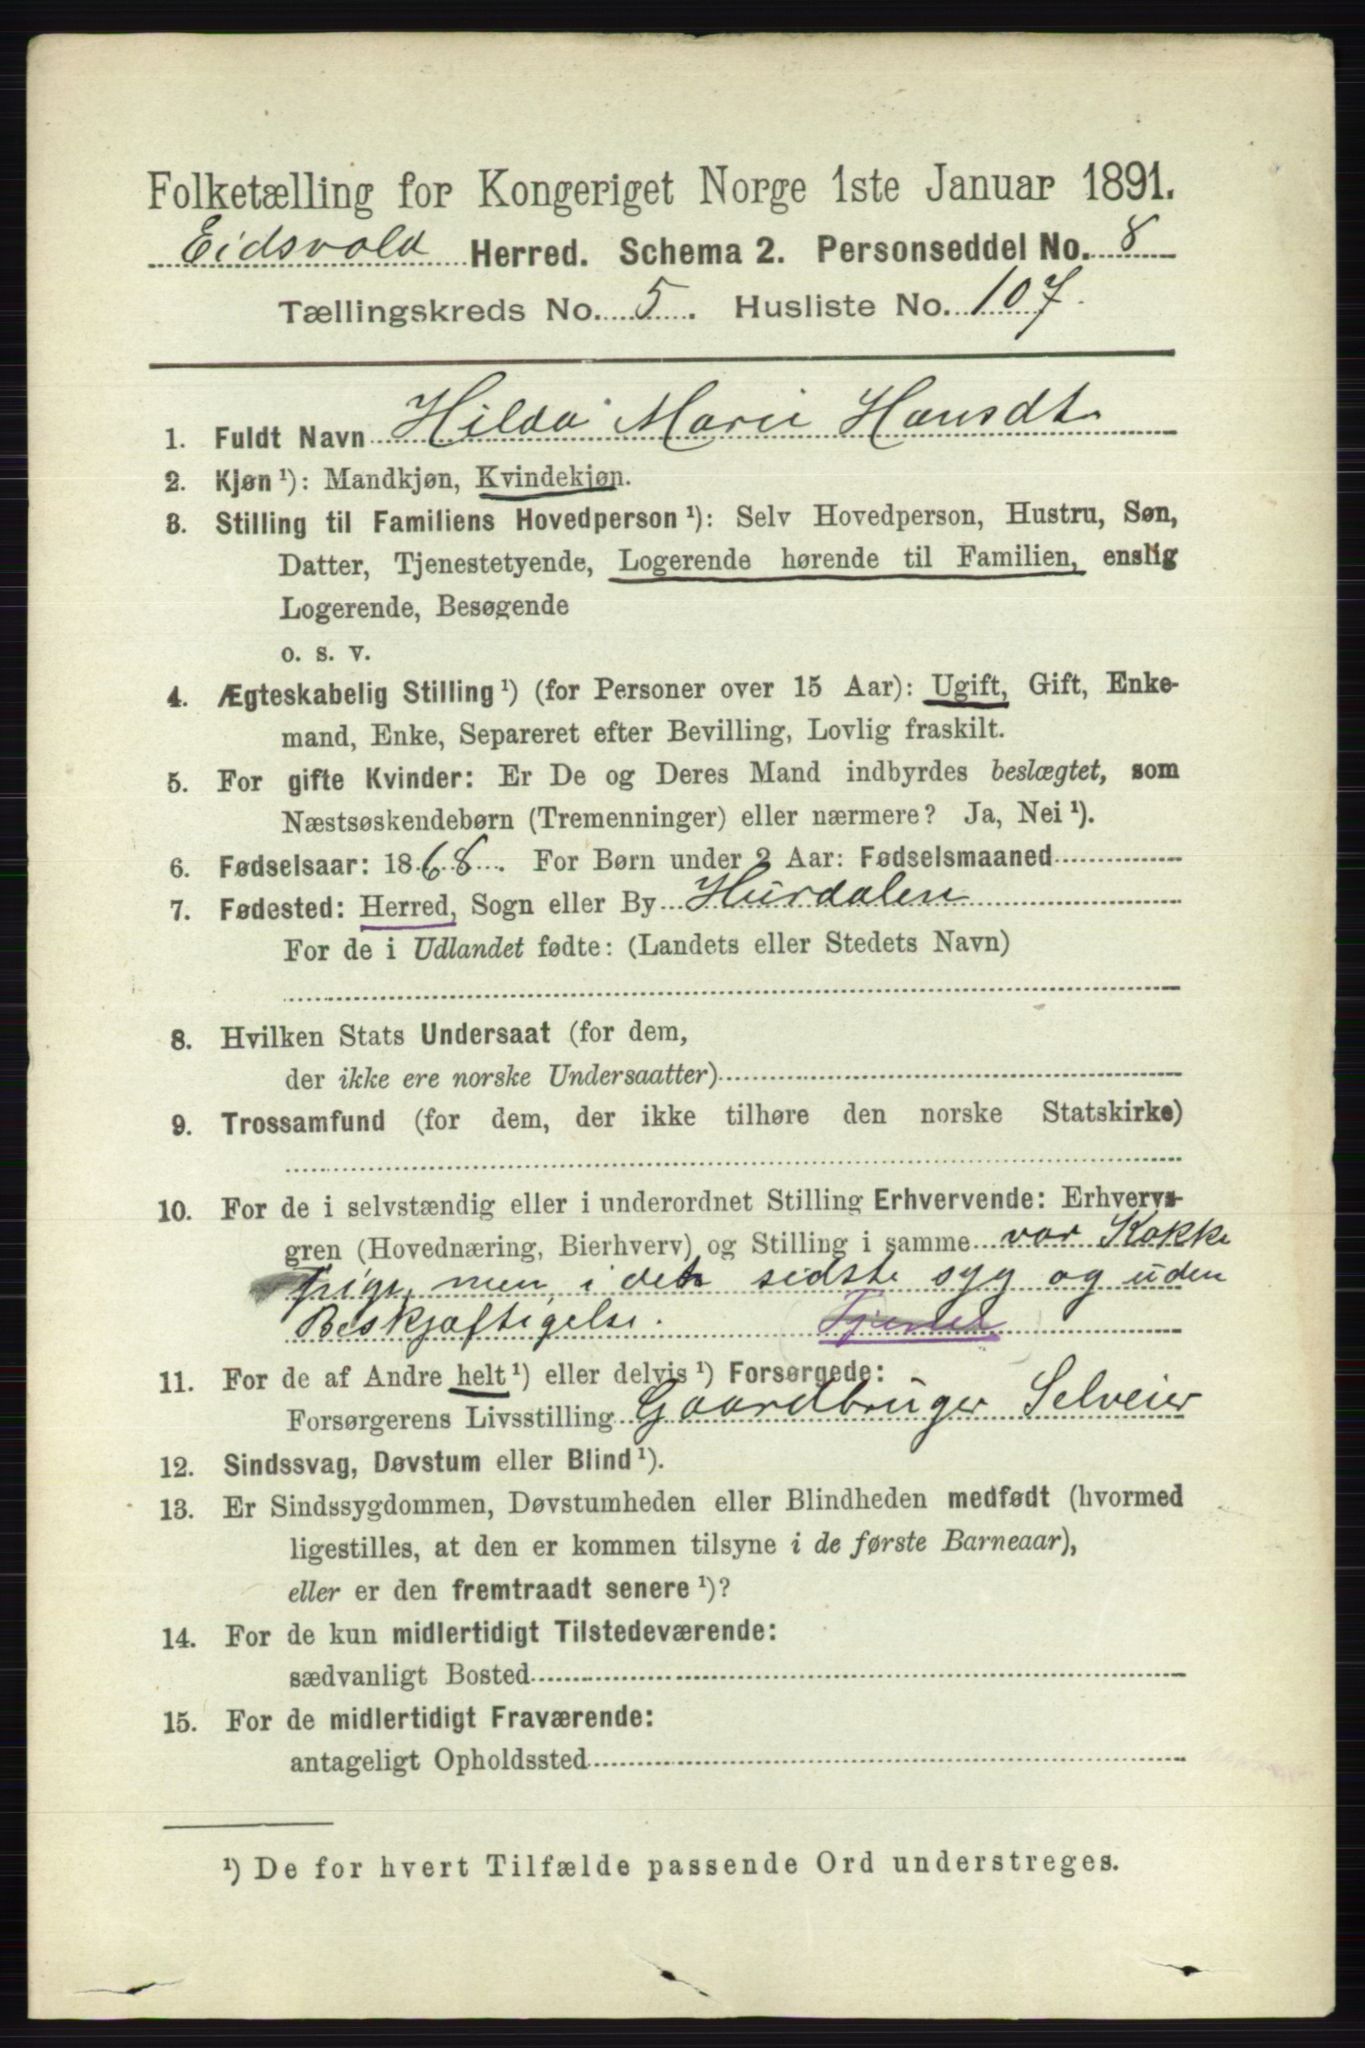 Folketælling for Kongeriget Norge 1ste Januar 1891.
Eidsvold Herred. Schema 2. Personseddel No. 8
Tællingskreds No. 5. Husliste No. 107.
1. Fuldt Navn Hilda Marie Hansdt
2. Kjøn ¹): Mandkjøn, Kvindekjøn.
3. Stilling til Familiens Hovedperson ¹): Selv Hovedperson, Hustru, Søn,
Datter, Tjenestetyende, Logerende hørende til Familien, enslig
Logerende, Besøgende
o. s. v.
4. Ægteskabelig Stilling ¹) (for Personer over 15 Aar): Ugift, Gift, Enke-
mand, Enke, Separeret efter Bevilling, Lovlig fraskilt.
5. For gifte Kvinder: Er De og Deres Mand indbyrdes beslægtet, som
Næstsøskendebørn (Tremenninger) eller nærmere? Ja, Nei ¹).
6. Fødselsaar: 1868. For Børn under 2 Aar: Fødselsmaaned
7. Fødested: Herred, Sogn eller By Hurdalen
For de i Udlandet fødte: (Landets eller Stedets Navn)
8. Hvilken Stats Undersaat (for dem,
der ikke ere norske Undersaatter)
9. Trossamfund (for dem, der ikke tilhøre den norske Statskirke)
10. For de i selvstændig eller i underordnet Stilling Erhvervende: Erhvervs-
gren (Hovednæring, Bierhverv) og Stilling i samme var Kokke
pige, men i det sidste syg og uden
Beskjæftigelse. Tjenest
11. For de af Andre helt ¹) eller delvis ¹) Forsørgede:
Forsørgerens Livsstilling Gaardbruger Selveier
12. Sindssvag, Døvstum eller Blind ¹).
13. Er Sindssygdommen, Døvstumheden eller Blindheden medfødt (hvormed
ligestilles, at den er kommen tilsyne i de første Barneaar),
eller er den fremtraadt senere ¹)?
14. For de kun midlertidigt Tilstedeværende:
sædvanligt Bosted
15. For de midlertidigt Fraværende:
antageligt Opholdssted
¹) De for hvert Tilfælde passende Ord understreges.